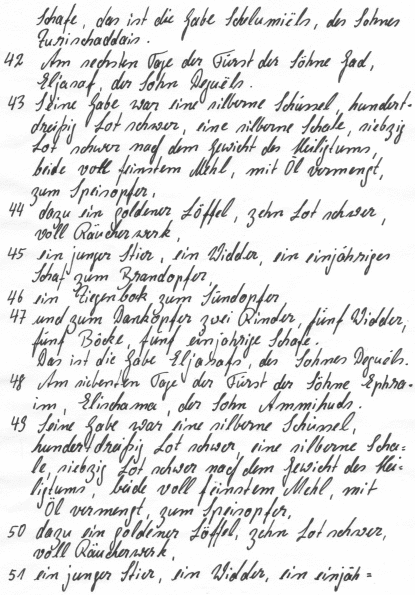 Schafe, das ist die Gabe Schelumiëls, des Sohnes
Zurischaddais.
42 Am sechsten Tage der Fürst der Söhne Gad,
Eljasaf, der Sohn Deguëls.
43 Seine Gabe war eine silberne Schüssel, hundert-
dreißig Lot schwer, eine silberne Schale, siebzig
Lot schwer nach dem Gewicht des Heiligtums,
beide voll feinstem Mehl, mit Öl vermengt,
zum Speisopfer,
44 dazu ein goldener Löffel, zehn Lot schwer,
voll Räucherwerk,
45 ein junger Stier, ein Widder, ein einjähriges
Schaf zum Brandopfer,
46 ein Ziegenbock zum Sündopfer
47 und zum Dankopfer zwei Rinder, fünf Widder,
fünf Böcke, fünf einjährige Schafe.
Das ist die Gabe Eljasafs, des Sohnes Deguëls.
48 Am siebenten Tage der Fürst der Söhne Ephra-
im, Elischama, der Sohn Ammihuds.
49 Seine Gabe war eine silberne Schüssel,
hundertdreißig Lot schwer, eine silberne Scha=
le, siebzig Lot schwer nach dem Gewicht des Hei=
ligtums, beide voll feinstem Mehl, mit
Öl vermengt, zum Speisopfer,
50 dazu ein goldener Löffel, zehn Lot schwer,
voll Räucherwerk,
51 ein junger Stier, ein Widder, ein einjäh=